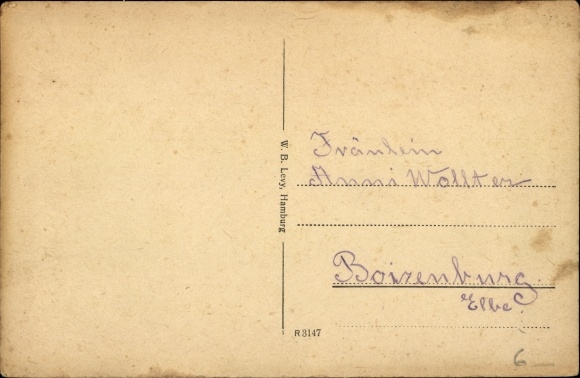 W. B. Levy, Hamburg
R 3147
Fräulein
Anni Wollter
Boizenburg.
Elbe.
6